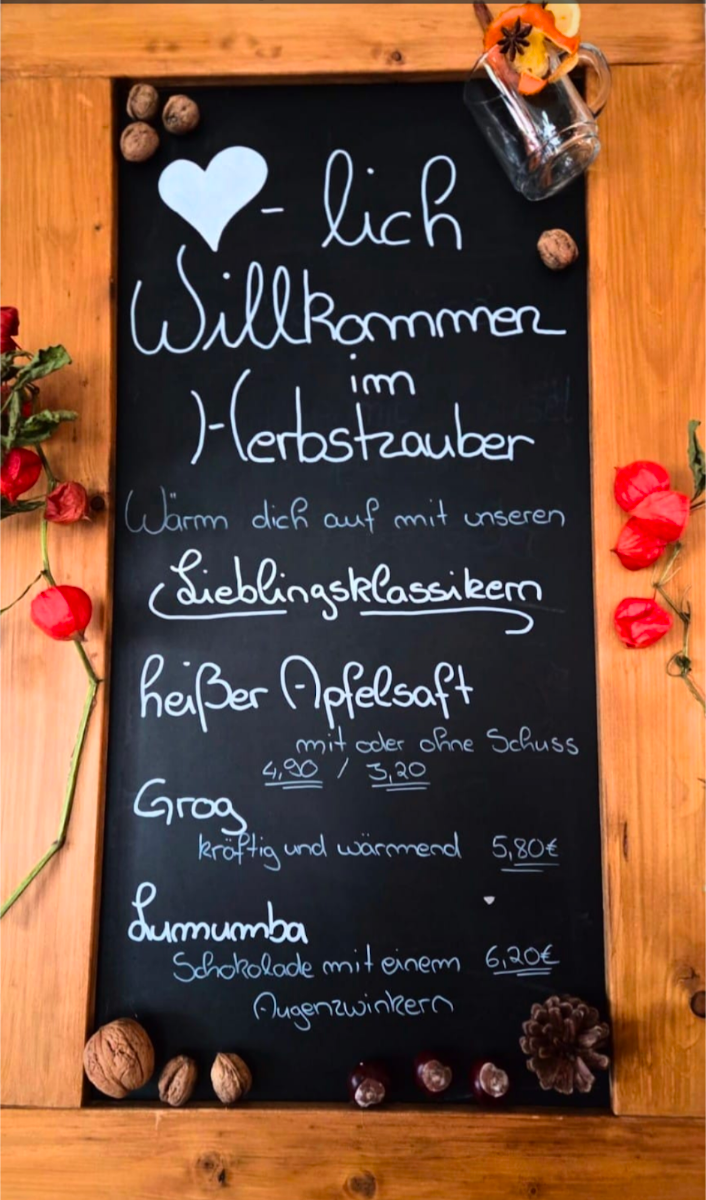 ♥-lich
Willkommen
im
Herbstzauber
Wärm dich auf mit unseren
Lieblingsklassikern
heißer Apfelsaft
mit oder ohne Schuss
4,90 / 3,20
Grog
kräftig und wärmend 5,80€
Lumumba
Schokolade mit einem 6,20€
Augenzwinkern